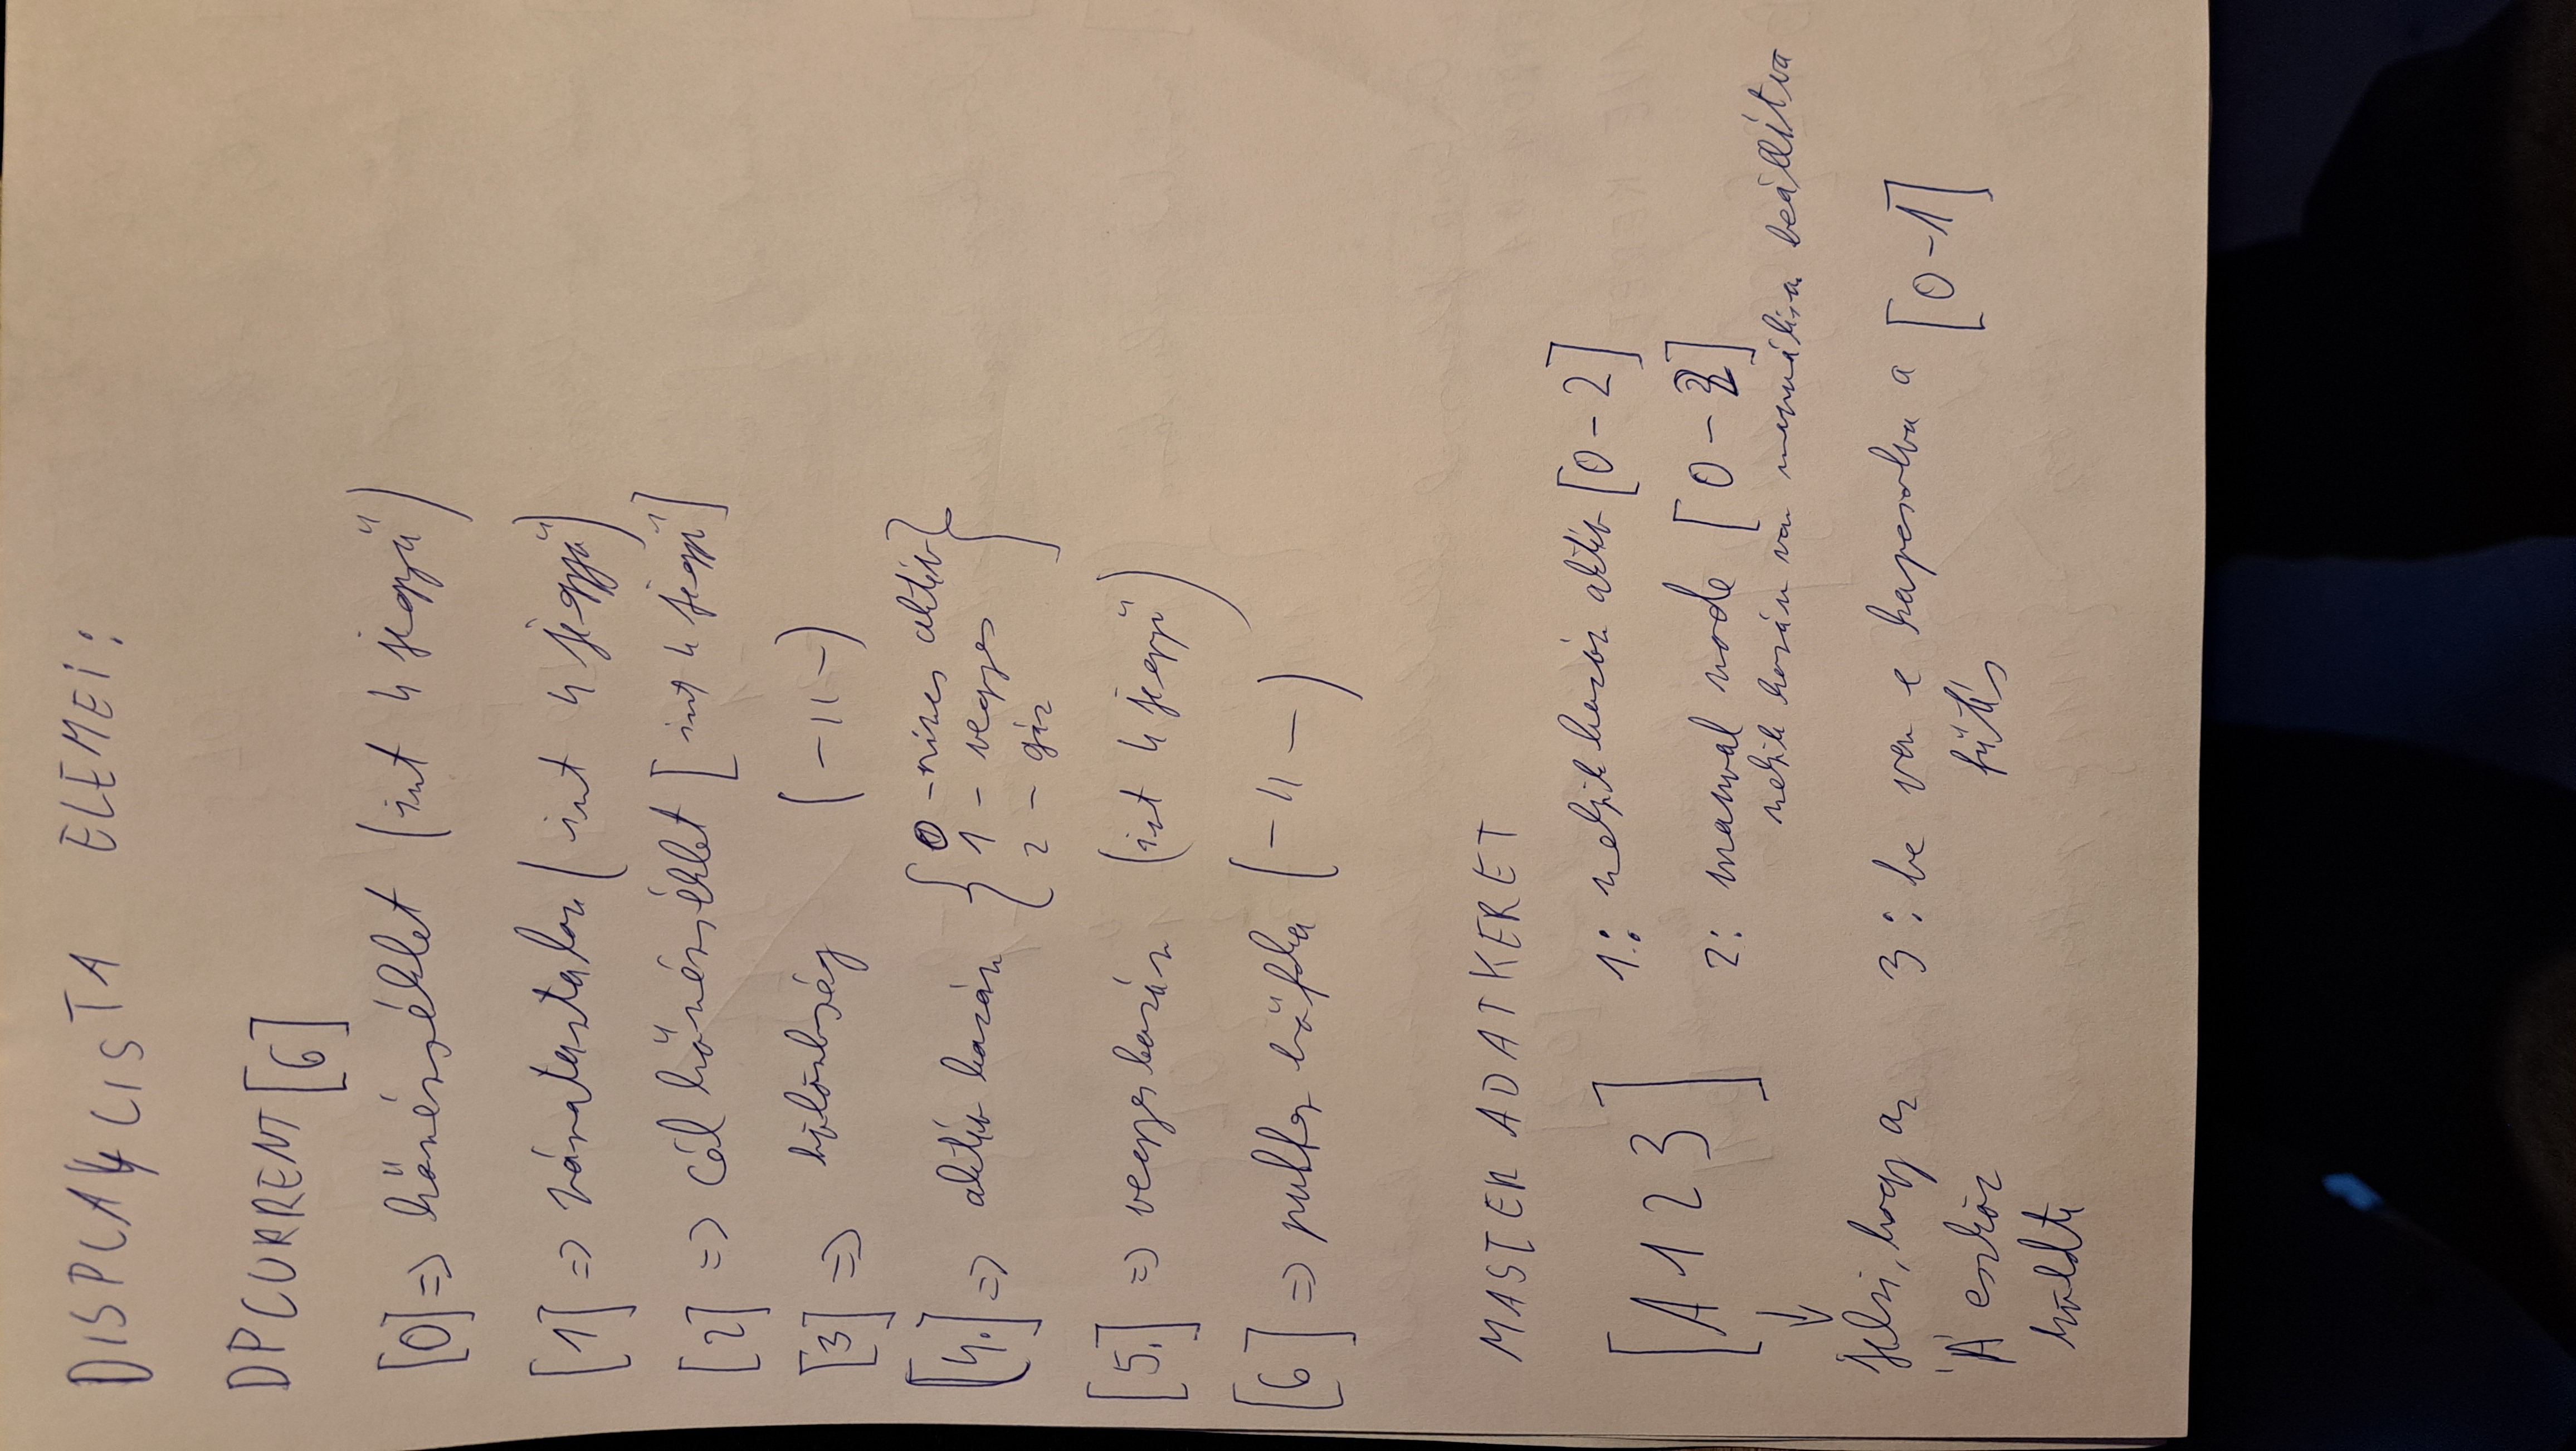 DISPLAY LISTA ELEMEI:
DPCURRENT[6]
[0] => hőmérséklet (int 4 jegyű)
[1] => páratartalom (int 4 jegyű)
[2] => cél hőmérséklet [int 4 jegyű]
[3] => különbség (-11-)
[4.] => aktív kazán { 0 - nincs aktív }
1 - vegyes
2 - gáz
[5.] => vegyes kazán (int 4 jegyű)
[6] => puffer hőfoka (-11-)
MASTER ADATKERET
[A 1 2 3] 1.: melyik kazán aktív [0-2]
2: manual mode [0-2]
melyik kazán van manuálisra beállítva
jelzi, hogy az 3: be van e kapcsolva a [0-1]
'A' eszköz fűtés
küldte